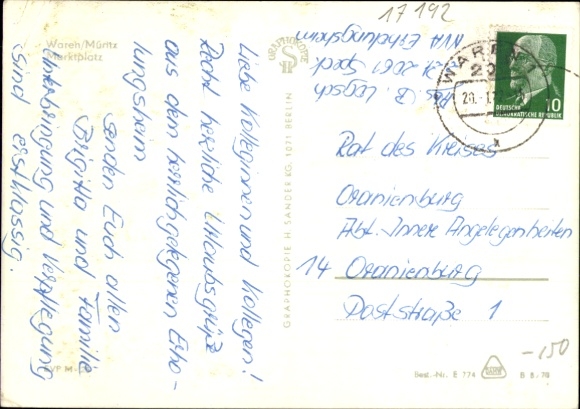 17 192
Waren/Müritz
Marktplatz
Liebe Kolleginnen und Kollegen!
Recht herzliche Urlaubsgrüße
aus dem herrlich gelegenen Erho-
lungsheim
senden Euch allen
Brigitta und Familie
Unterbringung und Verpflegung
sind erstklassig.
GRAPHOKOPIE
GRAPHOKOPIE H. SANDER KG, 1071 BERLIN
Abs. B.
2061
NVA Erholungsheim
WAREN
20
20.-1.
10
DEUTSCHE
DEMOKRATISCHE REPUBLIK
Rat des Kreises
Oranienburg
Abt. Innere Angelegenheiten
14 Oranienburg
Poststraße 1
-150
Best.-Nr. E 774
B 8/70